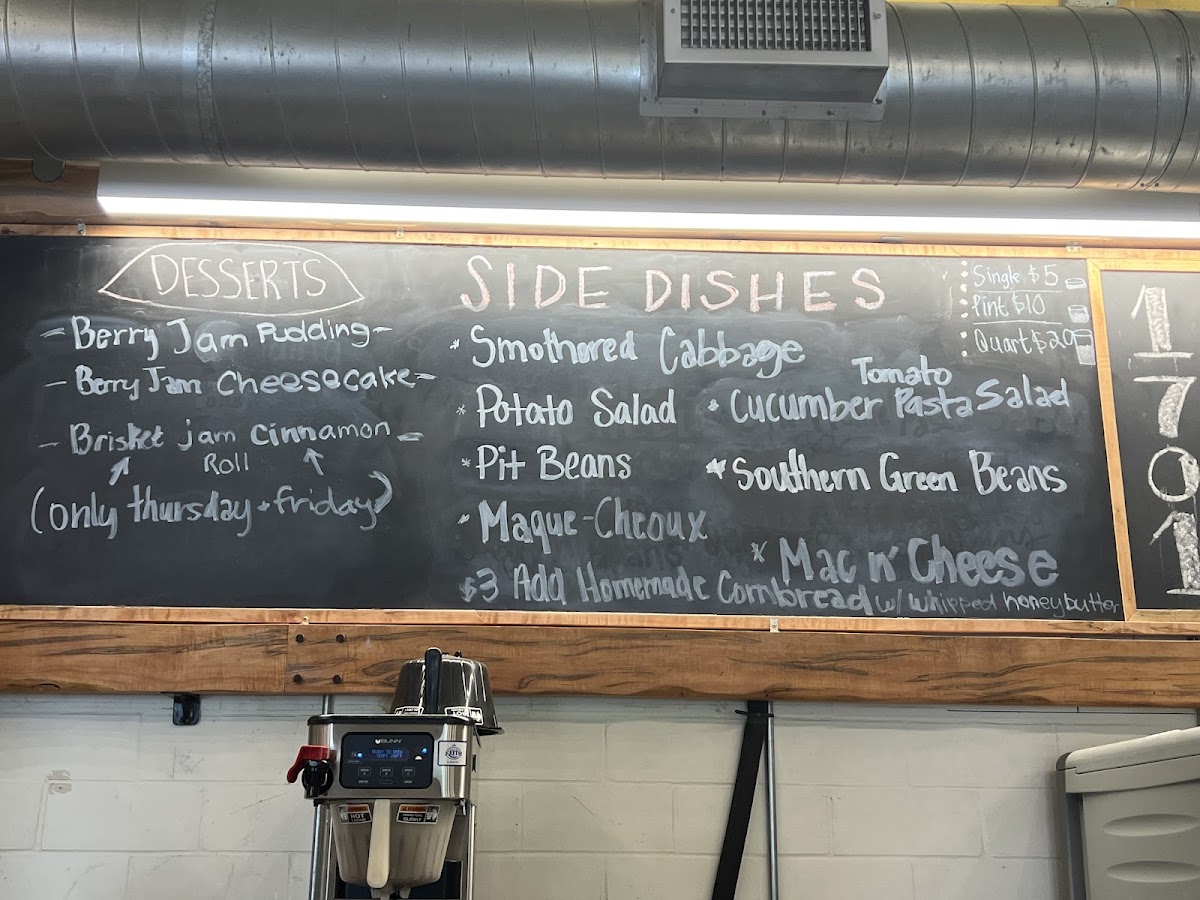 DESSERTS
Berry Jam Pudding
Berry Jam Cheesecake
Brisket jam Cinnamon
Roll
(only thursday + friday)
SIDE DISHES
Single $5
Pint $10
Quart $20
* Smothored Cabbage
* Potato Salad
* Pit Beans
* Maque-Cheoux
Tomato
* Cucumber Pasta Salad
* Southern Green Beans
* Mac n' Cheese
$3 Add Homemade Cornbread w/ whipped honeybutter
1
7
0
1
BUNN
READY TO BREW
HOT